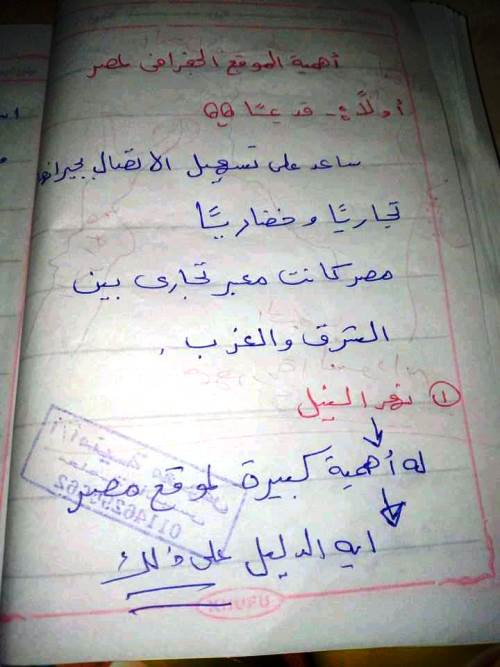 أهمية الموقع الجغرافى لمصر
أولاً :- قديمًا
ساعد على تسهيل الاتصال بجيرانها
تجاريًا وحضاريًا
مصر كانت معبر تجارى بين
الشرق والغرب .
① نهر النيل
له أهمية كبيرة لموقع مصر
ايه الدليل على ذلك
KHUFU